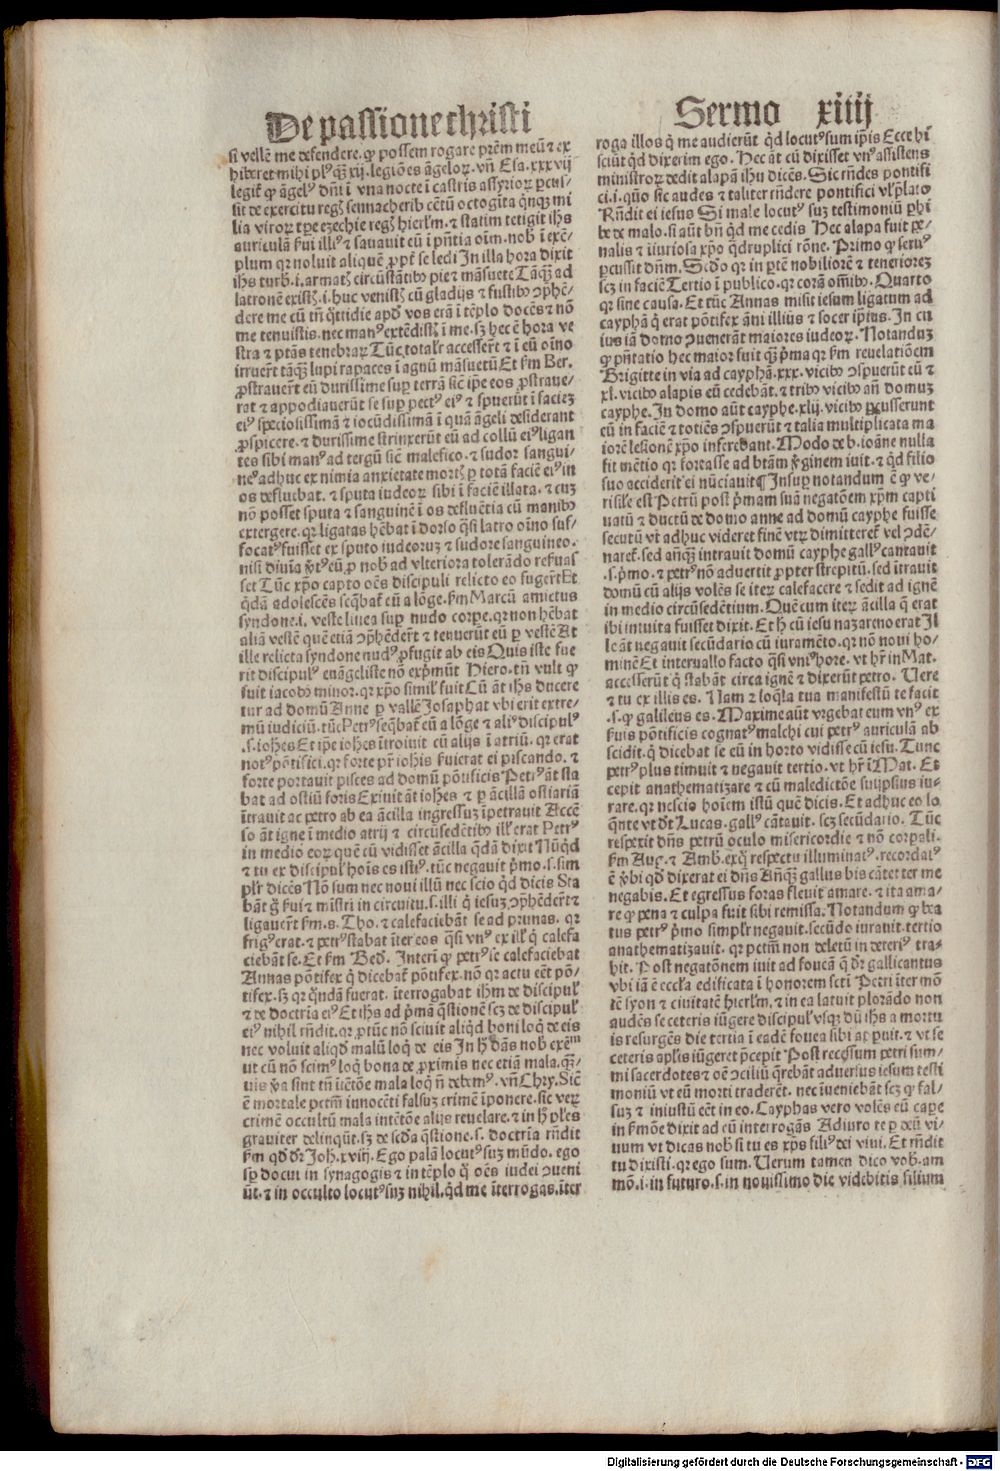 De passione christi
si vellẽ me defendere. ꝙ possem rogare pr̃em meũ ⁊ ex
hiberet mihi plꝰqꝫ xij. legiões ãgeloꝝ. vñ Esa. xxxvij
legiť ꝙ ãgelꝰ dñi ĩ vna nocte ĩ castris assyrioꝝ ꝑcus⸗
sit de exercitu regꝭ sennacherib cẽtũ octogĩta qͥnqꝫ mi
lia viroꝝ tꝑe ezechie regꝭ hierlm̃. ⁊ statim tetigit ihs
auriculã ẜui illiꝰ ⁊ sanauit eũ ĩ pñtia oĩm. nob̃ ĩ exẽ⸗
plum qꝛ noluit aliquẽ ꝓpť se ledi In illa hora dixit
ihs turb̃. i. armatꝭ circũstãtibꝰ pie ⁊ mãsuete Tãqꝫ ad
latronẽ existꝭ. i. huc venistꝭ cũ gladijs ⁊ fustibꝰ ↄp̃hẽ⸗
dere me cũ tñ qͦttidie apd̕ vos erã ĩ tẽplo docẽs ⁊ nõ
me tenuistis. nec manꝰ extẽdistꝭ ĩ me. sꝫ hec ẽ hora ve
stra ⁊ ptãs tenebraꝝ Tũc totalr̃ accesser̃t ⁊ ĩ eũ oĩno
irruer̃t tãqꝫ lupi rapaces ĩ agnũ mãsuetũ Et ẜm Ber.
ꝓstrauer̃t eũ durissime suꝑ terrã sic̃ ip̃e eos ꝓstraue⸗
rat ⁊ appodiauerũt se suꝑ pectꝰ eiꝰ ⁊ spuerũt ĩ facieꝫ
eiꝰ speciosissimã ⁊ iocũdissimã ĩ quã ãgeli desiderant
ꝓspicere. ⁊ durissime strinxerũt eũ ad collũ eiꝰ ligan
tes sibi manꝰ ad tergũ sic̃ malefico. ⁊ sudor sangui⸗
neꝰ adhuc ex nimia anxietate mortꝭ ꝑ totã faciẽ eiꝰ in
os defluebat. ⁊ sputa iudeoꝝ sibi ĩ faciẽ illata. ⁊ cuꝫ
nõ posset sputa ⁊ sanguinẽ ĩ os defluẽtia cũ manibꝰ
extergere. qꝛ ligatas hẽbat ĩ dorso qͣsi latro oĩno suf⸗
focatꝰ fuisset ex sputo iudeoruꝫ ⁊ sudore sanguineo.
nisi diuĩa v̓tꝰ eũ ꝓ nob̃ ad vlteriora tolerãdo reẜuas
set Tũc xp̃o capto oẽs discipuli relicto eo fugert Et
qͥdã adolescẽs seqͣbať eũ a lõge. ẜm Marcũ amictus
syndone. i. veste linea suꝑ nudo corꝑe. qꝛ non hẽbat
aliã vestẽ quẽ etiã ↄp̃hẽder̃t ⁊ tenuerũt eũ ꝑ vestẽ At
ille relicta syndone nudꝰ ꝓfugit ab eis Quis iste fue
rit discipulꝰ euãgeliste nõ exp̃mũt Hiero. tñ vult ꝙ
fuit iacobꝰ minor. qꝛ xp̃o simiľ fuit Cũ ãt ihs ducere
tur ad domũ Anne ꝑ vallẽ Josaphat vbi erit extre⸗
mũ iudiciũ. tũc Petrꝰ seqͣbať eũ a lõge ⁊ aliꝰ discipulꝰ
.s. ioh̃es Et ip̃e ioh̃es ĩtroiuit cũ alijs ĩ atriũ. qꝛ erat
notꝰ põtifici. qꝛ forte pr̃ ioh̃is ẜuierat ei piscando. ⁊
forte portauit pisces ad domũ põtificis Petrꝰ ãt sta
bat ad ostiũ foris Exiuit ãt ioh̃es ⁊ ꝑ ãcillã ostiariã
ĩtrauit ac petro ab ea ãcilla ingressuꝫ ĩpetrauit Accẽ
so ãt igne ĩ medio atrij ⁊ circũsedẽtibꝰ illꝭ erat Petrꝰ
in medio eoꝝ quẽ cũ vidisset ãcilla qͥdã dixit Nũqͥd
⁊ tu ex discipuľ hoĩs es istiꝰ. tũc negauit pͥmo. s. sim
plr̃ dicẽs Nõ sum nec noui illũ nec scio qͥd dicis Sta
bãt g̃ ẜui ⁊ mĩstri in circuitu. s. illi qͥ iesuꝫ ↄp̃hẽder̃t ⁊
ligauer̃t ẜm. s. Tho. ⁊ calefaciebãt se ad prunas. qꝛ
frigꝰ erat. ⁊ petrꝰ stabat ĩter eos qͣsi vnꝰ ex illꝭ qͥ calefa
ciebãt se. Et ẜm Bed̃. Interĩ ꝙ petrꝰ se calefaciebat
Annas põtifex qͥ dicebať põtifex. nõ qꝛ actu eẽt põ⸗
tifex. sꝫ qꝛ qͥñdã fuerat. ĩterrogabat ihm̃ de discipuľ
⁊ de doctrĩa eiꝰ Et ihs ad pͥmã qͣstionẽ scꝫ de discipuľ
eiꝰ nihil rñdit. qꝛ ꝑ tũc nõ sciuit aliqͥd boni loqͥ de eis
nec voluit aliqͥd malũ loqͥ de eis In h̃ dãs nob̃ exẽᵐ
ut cũ nõ scimꝰ loqͥ bona de ꝓximis nec etiã mala. qꝫ⸗
uis v̓a sint tñ ĩ ĩtẽtõe mala loqͥ ñ debemꝰ. vñ Chry. Sic̃
ẽ mortale petm̃ innocẽti falsuꝫ crimẽ ĩponere. sic veꝝ
crimẽ occultũ mala intẽtõe alijs reuelare. ⁊ in h̃ pl̃es
grauiter delinqũt. sꝫ de scd̃a qͣstione. s. doctrĩa rñdit
ẜm qd̕ dr̃ Joh̃. xviij. Ego palã locutꝰ suꝫ mũdo. ego
sꝑ docui in synagogis ⁊ in tẽplo qͦ oẽs iudei ↄueni
ũt. ⁊ in occulto locutꝰ suꝫ nihil. qͥd me ĩterrogas. ĩter
Sermo xiiij
roga illos qͥ me audierũt qͥd locutꝰ sum ip̃is Ecce hi
sciũt qͥd dixerim ego. Hec ãt cũ dixisset vnꝰ assistens
ministroꝝ dedit alapã ihũ dicẽs. Sic rñdes pontifi
ci. i. quõ sic audes ⁊ taliter rñdere pontifici vľ p̃lato
Rñdit ei iesus Si male locutꝰ suꝫ testimoniũ ꝑhi
be de malo. si aũt bñ qͥd me cedis Hec alapa fuit pe⸗
nalis ⁊ iniuriosa xp̃o qͣdruplici rõne. Primo qꝛ seruꝰ
ꝑcussit dñm. Scd̃o qꝛ in ꝑtẽ nobiliorẽ ⁊ tenerioreꝫ
scꝫ in faciẽ Tertio ĩ publico. qꝛ corã oĩbꝰ. Quarto
qꝛ sine causa. Et tũc Annas misit iesum ligatum ad
cayphã qͥ erat põtifex ãni illius ⁊ socer ip̃ius. In cu
ius iã domo ↄuenerãt maiores iudeoꝝ. Notanduꝫ
ꝙ pñtatio hec maior fuit qꝫ pͥma qꝛ ẜm reuelatiõem
Brigitte in via ad cayphã. xxx. vicibꝰ ↄspuerũt eũ ⁊
xl. vicibꝰ alapis eũ cedebãt. ⁊ tribꝰ vicibꝰ añ domuꝫ
cayphe. In domo aũt cayphe. xlij. vicibꝰ ꝑcusserunt
eũ in faciẽ ⁊ totiẽs ↄspuerũt ⁊ talia multiplicata ma
iorẽ lesionẽ xp̃o inferebant. Modo de b. ioãne nulla
fit mẽtio qꝛ fortasse ad btãm v̓ginem iuit. ⁊ qͥd filio
suo acciderit ei nũciauit ¶ Insuꝑ notandum ẽ ꝙ ve⸗
risiľe est Petrũ post pͥmam suã negatõem xp̃m capti
uatũ ⁊ ductũ de domo anne ad domũ cayphe fuisse
secutũ vt adhuc videret finẽ vtꝝ dimitteretˀ vel ↄdẽ⸗
naretˀ. sed añqꝫ intrauit domũ cayphe gallꝰ cantauit
.s. pͥmo. ⁊ petrꝰ nõ aduertit ꝓpter strepitũ. sed ĩtrauit
domũ cũ alijs volẽs se iteꝝ calefacere ⁊ sedit ad ignẽ
in medio circũsedẽtium. Quẽ cum iteꝝ ãcilla q̃ erat
ibi intuita fuisset dixit. Et h̃ cũ iesu nazareno erat Il
le ãt negauit secũdario cũ iuramẽto. qꝛ nõ noui ho⸗
minẽ Et interuallo facto qͣsi vniꝰ hore. vt hr̃ in Mat.
accesserũt qͥ stabãt circa ignẽ ⁊ dixerũt petro. Uere
⁊ tu ex illis es. Nam ⁊ loqͣla tua manifestũ te facit
.s. ꝙ galileus es. Maxime aũt vrgebat eum vnꝰ ex
ẜuis põtificis cognatꝰ malchi cui petrꝰ auriculã ab
scidit. qͥ dicebat se eũ in horto vidisse cũ iesu. Tunc
petrꝰ plus timuit ⁊ negauit tertio. vt hr̃ ĩ Mat. Et
cepit anathematizare ⁊ cũ maledictõe suijpsius iu⸗
rare. qꝛ nescio hoĩem istũ quẽ dicis. Et adhuc eo lo
qͣnte vt dt̃ Lucas. gallꝰ cãtauit. scꝫ secũdario. Tũc
respexit dñs petrũ oculo misericordie ⁊ nõ corꝑali.
ẜm Aug. ⁊ Amb. ex qͦ respectu illuminatꝰ. recordatꝰ
ẽ v̓bi qd̕ dixerat ei dñs Añqꝫ gallus bis cãtet ter me
negabis. Et egressus foras fleuit amare. ⁊ ita ama⸗
re ꝙ pena ⁊ culpa fuit sibi remissa. Notandum ꝙ bea
tus petrꝰ pͥmo simplr̃ negauit. secũdo iurauit. tertio
anathematizauit. qꝛ petm̃ non deletũ in deteriꝰ tra⸗
hit. Post negatõnem iuit ad foueã q̃ dr̃ gallicantus
vbi iã ẽ eccľa edificata ĩ honorem scti Petri ĩter mõ
tẽ syon ⁊ ciuitatẽ hierľm. ⁊ in ea latuit plorãdo non
audẽs se ceteris iũgere discipuľ vsqꝫ dũ ihs a mortu
is resurgẽs die tertia ĩ eadẽ fouea sibi aꝑuit. ⁊ vt se
ceteris aplis iũgeret p̃cepit Post recessum petri sum⸗
mi sacerdotes ⁊ oẽ ↄciliũ querebãt aduersus iesum testi
moniũ vt eũ morti traderẽt. nec ĩueniebãt scꝫ ꝙ fal⸗
suꝫ ⁊ iniustũ eẽt in eo. Cayphas vero volẽs eũ caꝑe
in ẜmõe dixit ad eũ interrogãs Adiuro te ꝑ deũ vi⸗
uum vt dicas nob̃ si tu es xp̃s filiꝰ dei viui. Et rñdit
tu dixisti. qꝛ ego sum. Uerum tamen dico vob̃. am
mõ. i. in futuro. s. in nouissimo die videbitis filium
Digitalisierung gefördert durch die Deutsche Forschungsgemeinschaft - DFG